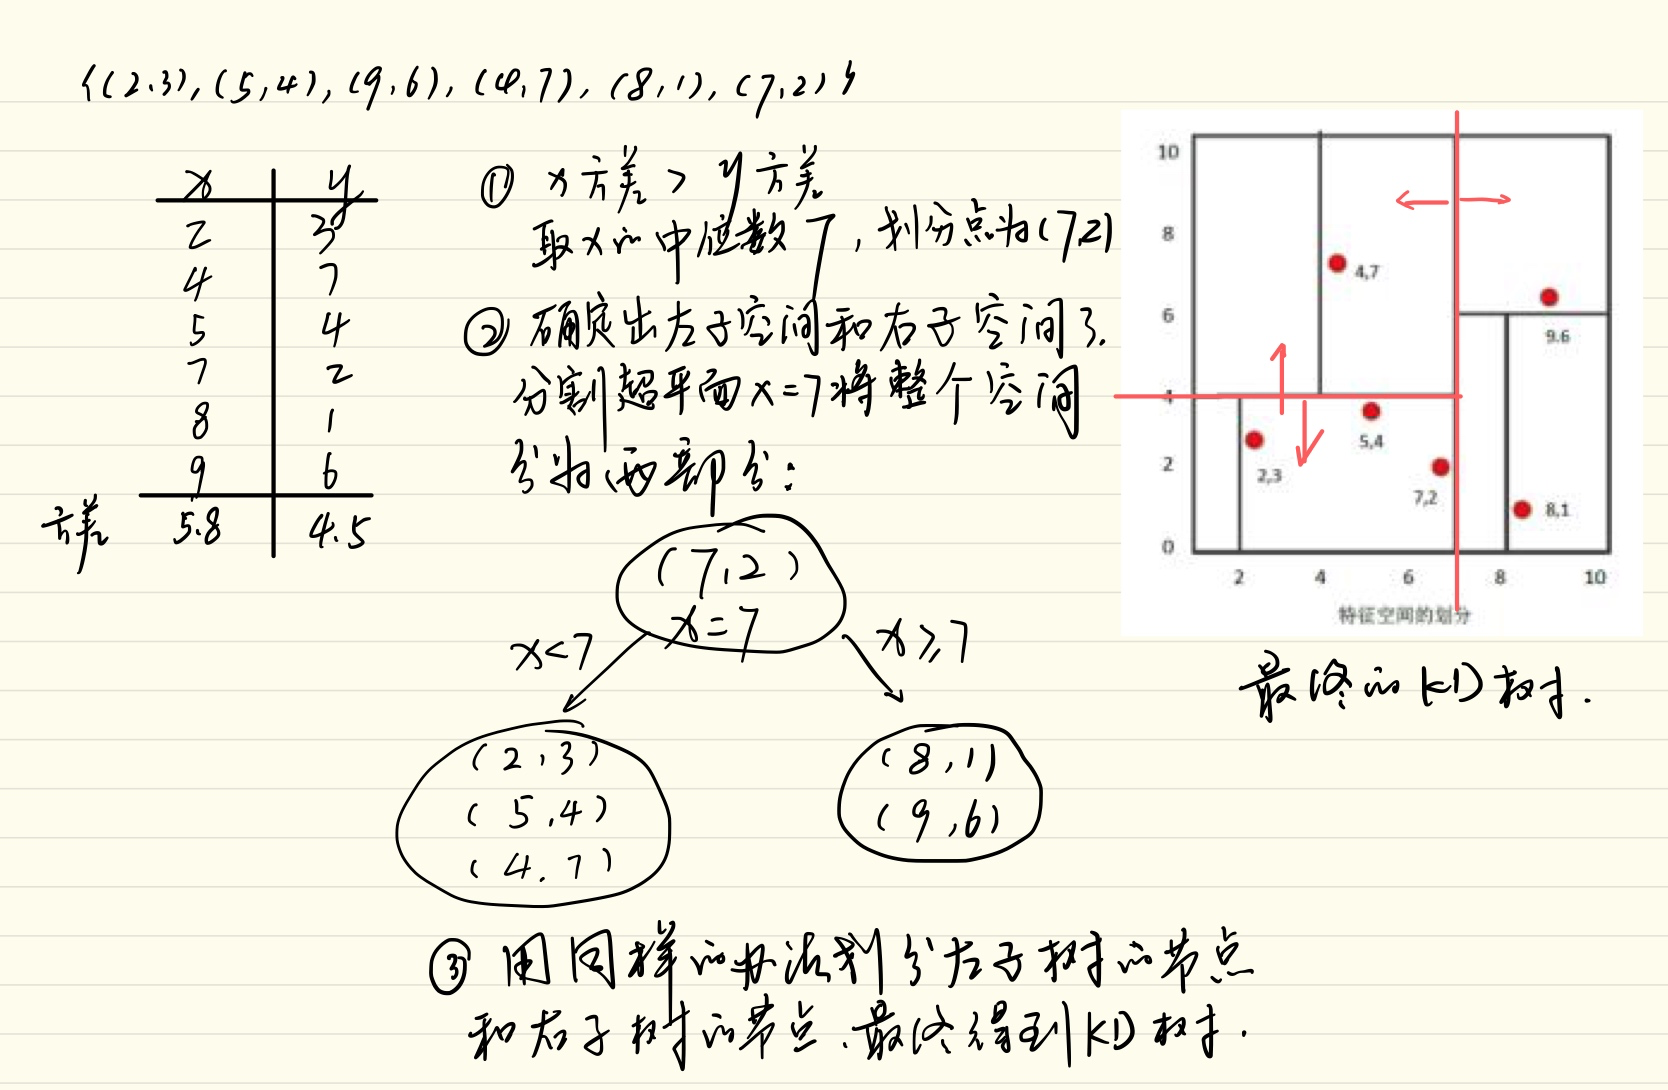 {(2,3),(5,4),(9,6),(4,7),(8,1),(7,2)}
x y
2 3
4 7
5 4
7 2
8 1
9 6
方差 5.8 4.5
① x方差 > y方差
取x的中位数7,划分点为(7,2)
② 确定出左子空间和右子空间了.
分割超平面x=7将整个空间
分为两部分:
(7,2)
x=7
x<7
x≥7
(2,3)
(5,4)
(4,7)
(8,1)
(9,6)
③ 用同样的办法划分左子树的节点
和右子树的节点.最终得到KD树.
10
8
6
4
2
0
4,7
9.6
5,4
2,3
7,2
8,1
2 4 6 8 10
特征空间的划分
最终的KD树.